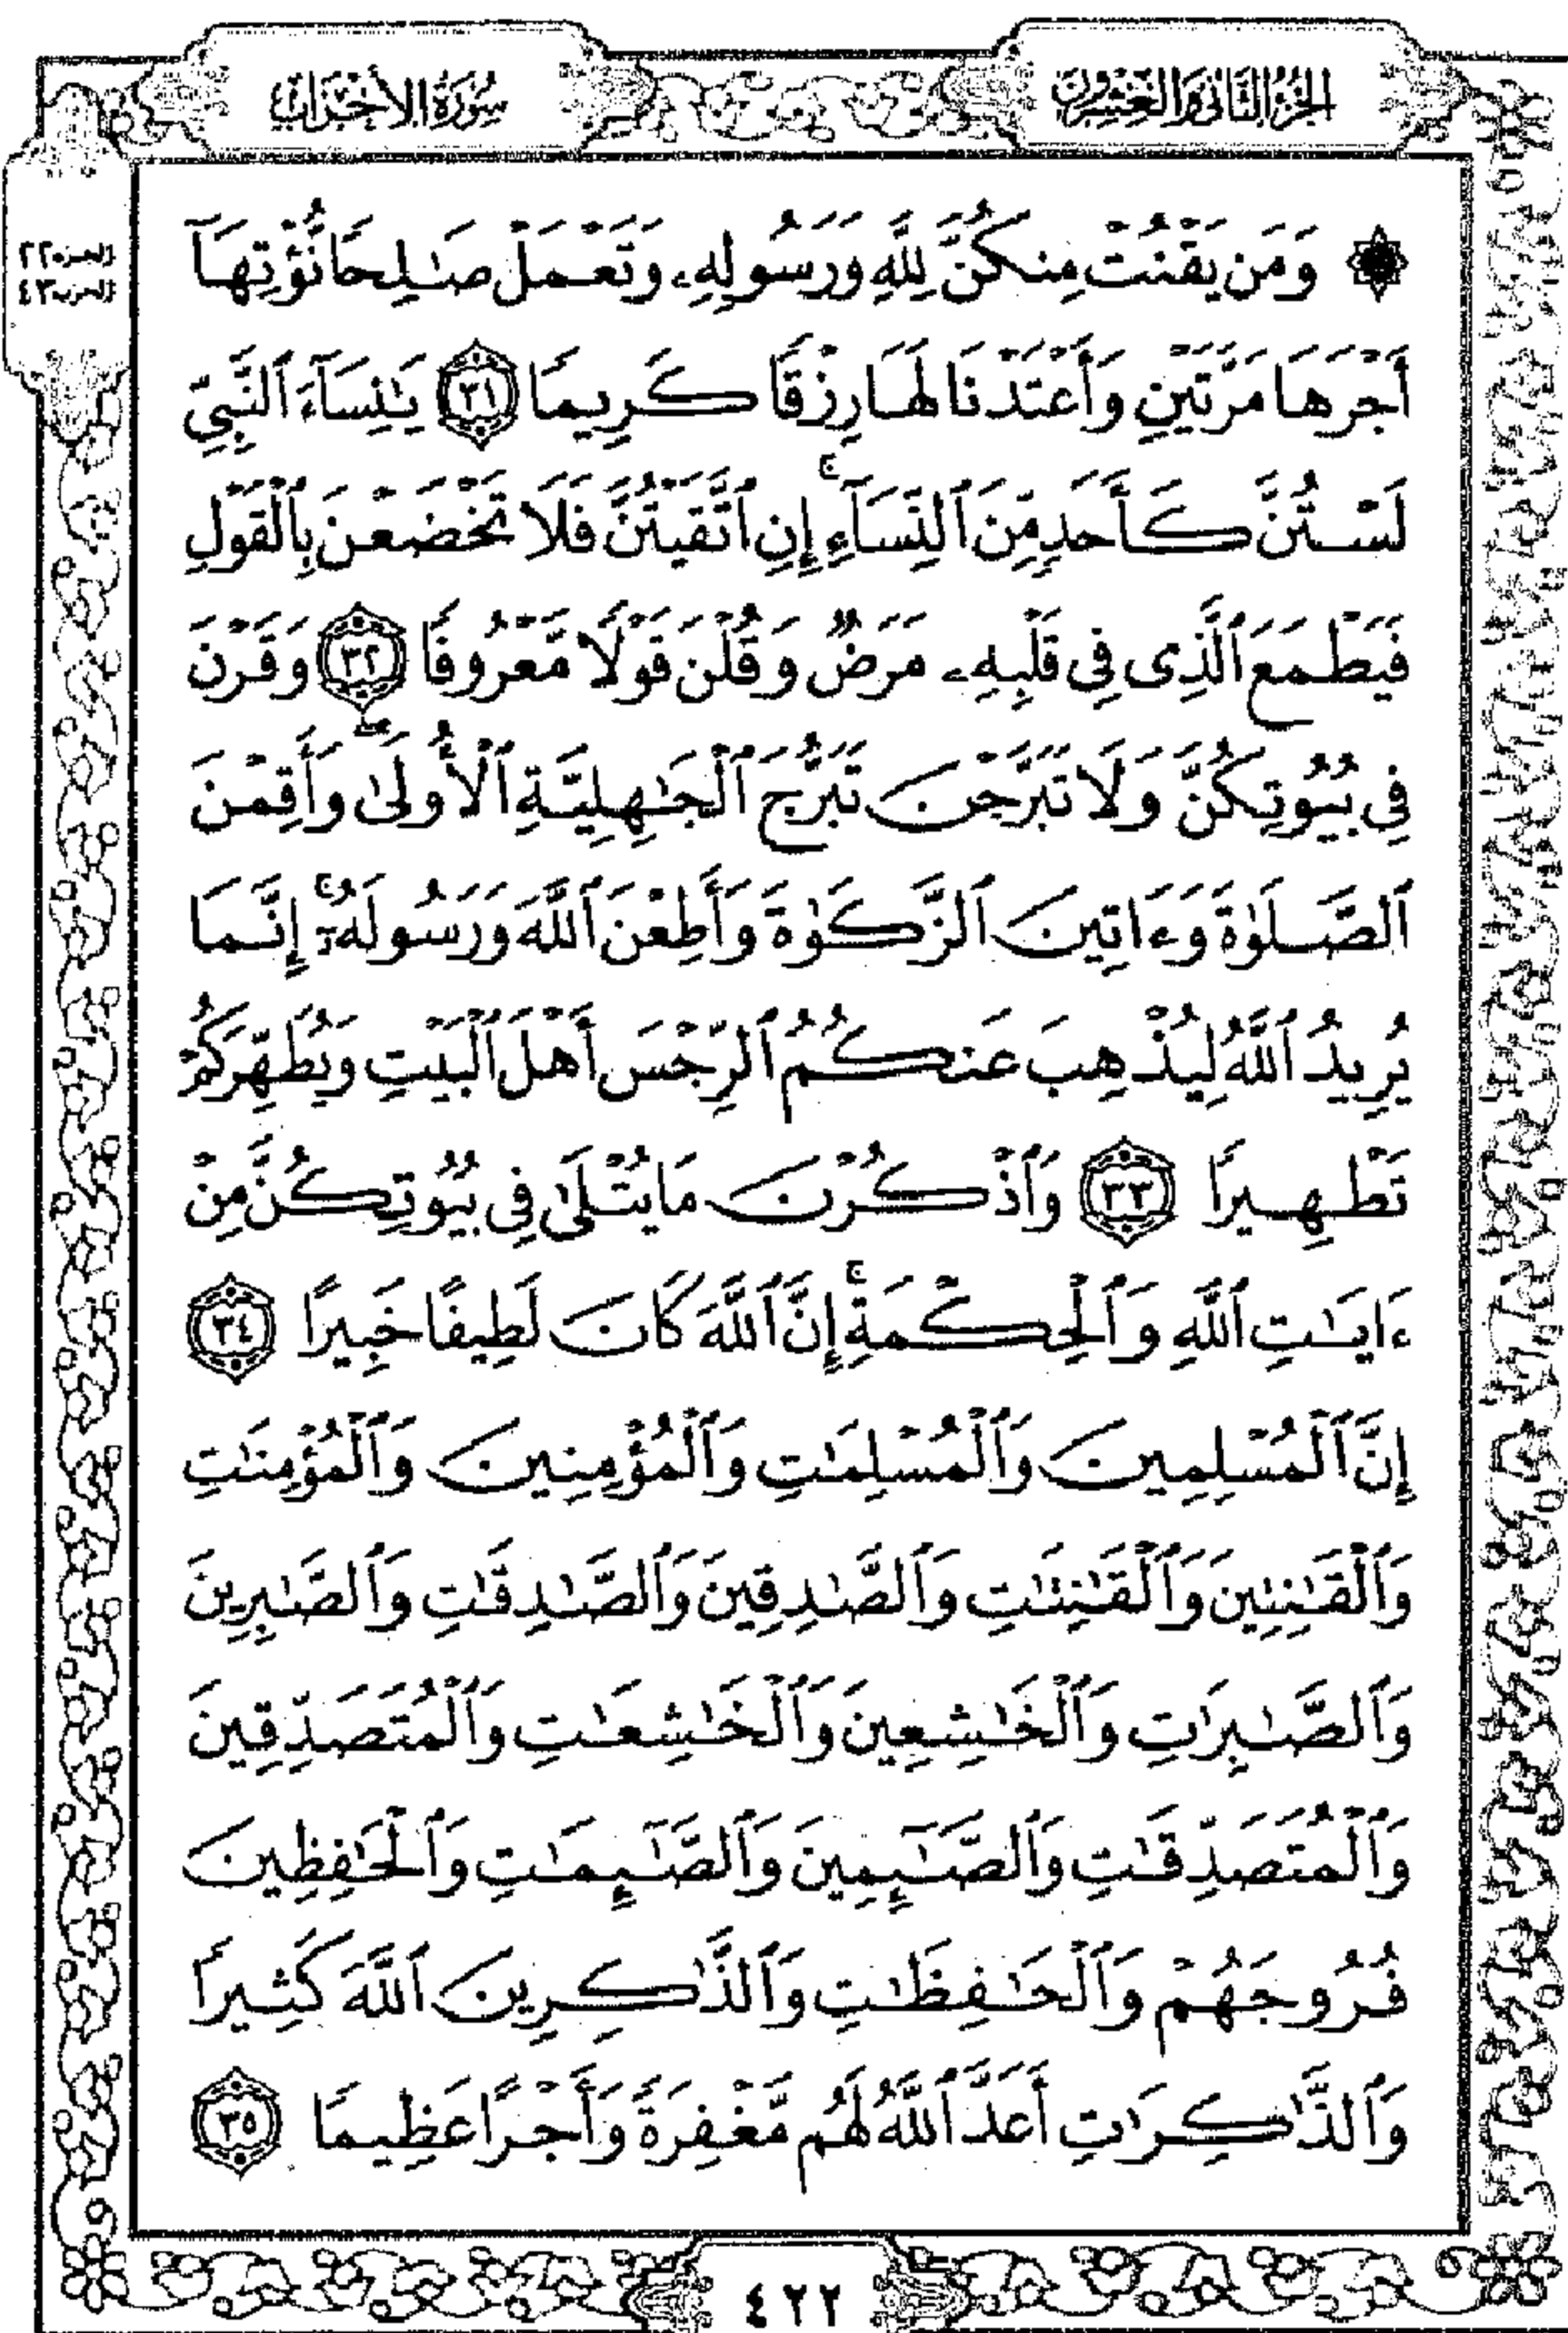 الجزء الثاني والعشرون
سورة الأحزاب
الجزء ٢٢
الحزب ٤٣
۞ وَمَن يَقْنُتْ مِنكُنَّ لِلَّهِ وَرَسُولِهِۦ وَتَعْمَلْ صَـٰلِحًا نُّؤْتِهَآ
أَجْرَهَا مَرَّتَيْنِ وَأَعْتَدْنَا لَهَا رِزْقًا كَرِيمًا ٣١ يَـٰنِسَآءَ ٱلنَّبِيِّ
لَسْتُنَّ كَأَحَدٍ مِّنَ ٱلنِّسَآءِ ۚ إِنِ ٱتَّقَيْتُنَّ فَلَا تَخْضَعْنَ بِٱلْقَوْلِ
فَيَطْمَعَ ٱلَّذِى فِى قَلْبِهِۦ مَرَضٌ وَقُلْنَ قَوْلًا مَّعْرُوفًا ٣٢ وَقَرْنَ
فِى بُيُوتِكُنَّ وَلَا تَبَرَّجْنَ تَبَرُّجَ ٱلْجَـٰهِلِيَّةِ ٱلْأُولَىٰ ۖ وَأَقِمْنَ
ٱلصَّلَوٰةَ وَءَاتِينَ ٱلزَّكَوٰةَ وَأَطِعْنَ ٱللَّهَ وَرَسُولَهُۥٓ ۚ إِنَّمَا
يُرِيدُ ٱللَّهُ لِيُذْهِبَ عَنكُمُ ٱلرِّجْسَ أَهْلَ ٱلْبَيْتِ وَيُطَهِّرَكُمْ
تَطْهِيرًا ٣٣ وَٱذْكُرْنَ مَا يُتْلَىٰ فِى بُيُوتِكُنَّ مِنْ
ءَايَـٰتِ ٱللَّهِ وَٱلْحِكْمَةِ ۚ إِنَّ ٱللَّهَ كَانَ لَطِيفًا خَبِيرًا ٣٤
إِنَّ ٱلْمُسْلِمِينَ وَٱلْمُسْلِمَـٰتِ وَٱلْمُؤْمِنِينَ وَٱلْمُؤْمِنَـٰتِ
وَٱلْقَـٰنِتِينَ وَٱلْقَـٰنِتَـٰتِ وَٱلصَّـٰدِقِينَ وَٱلصَّـٰدِقَـٰتِ وَٱلصَّـٰبِرِينَ
وَٱلصَّـٰبِرَٰتِ وَٱلْخَـٰشِعِينَ وَٱلْخَـٰشِعَـٰتِ وَٱلْمُتَصَدِّقِينَ
وَٱلْمُتَصَدِّقَـٰتِ وَٱلصَّـٰٓئِمِينَ وَٱلصَّـٰٓئِمَـٰتِ وَٱلْحَـٰفِظِينَ
فُرُوجَهُمْ وَٱلْحَـٰفِظَـٰتِ وَٱلذَّٰكِرِينَ ٱللَّهَ كَثِيرًا
وَٱلذَّٰكِرَٰتِ أَعَدَّ ٱللَّهُ لَهُم مَّغْفِرَةً وَأَجْرًا عَظِيمًا ٣٥
٤٢٢